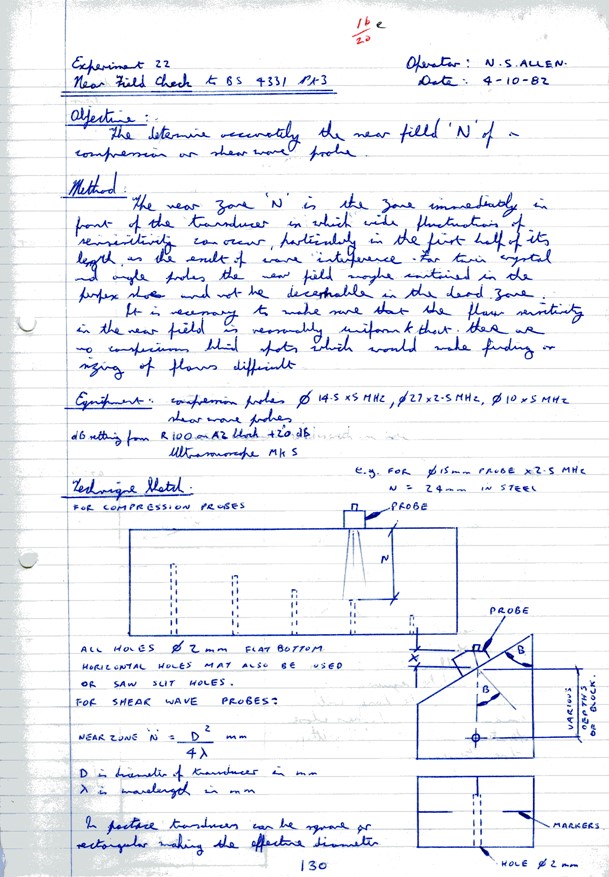 16 c
20
Experiment 22
Operator: N.S. ALLEN.
Near Field Check to BS 4331 Pt3
Date: 4-10-82
Objective:-
The determine accurately the near filld 'N' of a
compression or shear wave probe.
Method:
The near zone 'N' is the zone immediately in
front of the transducer in which wide fluctuations of
sensitivity can occur, particularly in the first half of its
length, as the result of wave interference. For twin crystal
and angle probes the near field maybe contained in the
perspex shoes and not be decernable in the dead zone.
It is necessary to make sure that the flaw sensitivity
in the near field is reasonably uniform & that there are
no conspicuous blind spots which would make finding or
sizing of flaws difficult.
Equipment: compression probes Ø 14.5 x 5 MHz, Ø27 x 2.5 MHz, Ø 10 x 5 MHz
shear wave probes
dB setting from R100 on A2 block +20 dB
Ultrasonoscope Mk 5
e.g. FOR Ø15mm PROBE x 2.5 MHz
N = 24mm IN STEEL
Technique Sketch.
FOR COMPRESSION PROBES
PROBE
N
PROBE
ALL HOLES Ø 2 mm FLAT BOTTOM
HORIZONTAL HOLES MAY ALSO BE USED
OR SAW SLIT HOLES.
X
B
B
FOR SHEAR WAVE PROBES:
VARIOUS
DEPTHS
OF BLOCK.
NEAR ZONE 'N' = D² mm
4λ
D is diameter of transducer in mm
λ is wavelength in mm
In practace transducers can be square or
rectangular making the effective diameter
MARKERS.
HOLE Ø 2 mm
130